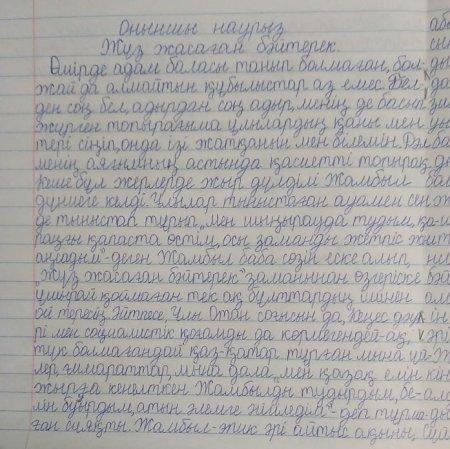 Оныншы наурыз
Жүз жасаған бәйтерек.
Өмірде адам баласы танып болмаған, бол-
жай да алмайтын құбылыстар аз емес. Бел-
ден соң бел, адырдан соң адыр, менің де басып
жүрген топырағыма ұлылардың қаны мен
тері сіңіп, онда ізі жатқанын мен білемін. Дәл
менің аяғымның астында қасиетті топырақ
Және бұл жерлерде жыр дүлділі Жамбыл
дүниеге келді. Ұлылар тыныстаған ауамен сен
де тыныстап тұрып, „мен шыңырауда тудым, қа-
раңғы қапаста өстім, осы заманды жетпіс жыл
аңсадым" - деген Жамбыл баба сөзін еске алып,
„Жүз жасаған бәйтерек" заманынан өзгеріске
ұшырай қоймаған тек ақ бұлттардың ішінен
ой тересің. Әйтпесе, Ұлы Отан соғысын да, Кеңес дәуі-
рі мен социалистік қоғамды да көрмегендей-ақ,
түк болмағандай қаз-қатар тұрған мына үй-
лер, ғимараттар, мына дала, „мен қазақ елін
жырға кенелткен Жамбылды тудырдым, бе-
лін буырдым, атын әлемге әйгіледім" - деп тұр-
ған сияқты. Жамбыл - эпик әрі айтыс ақыны,